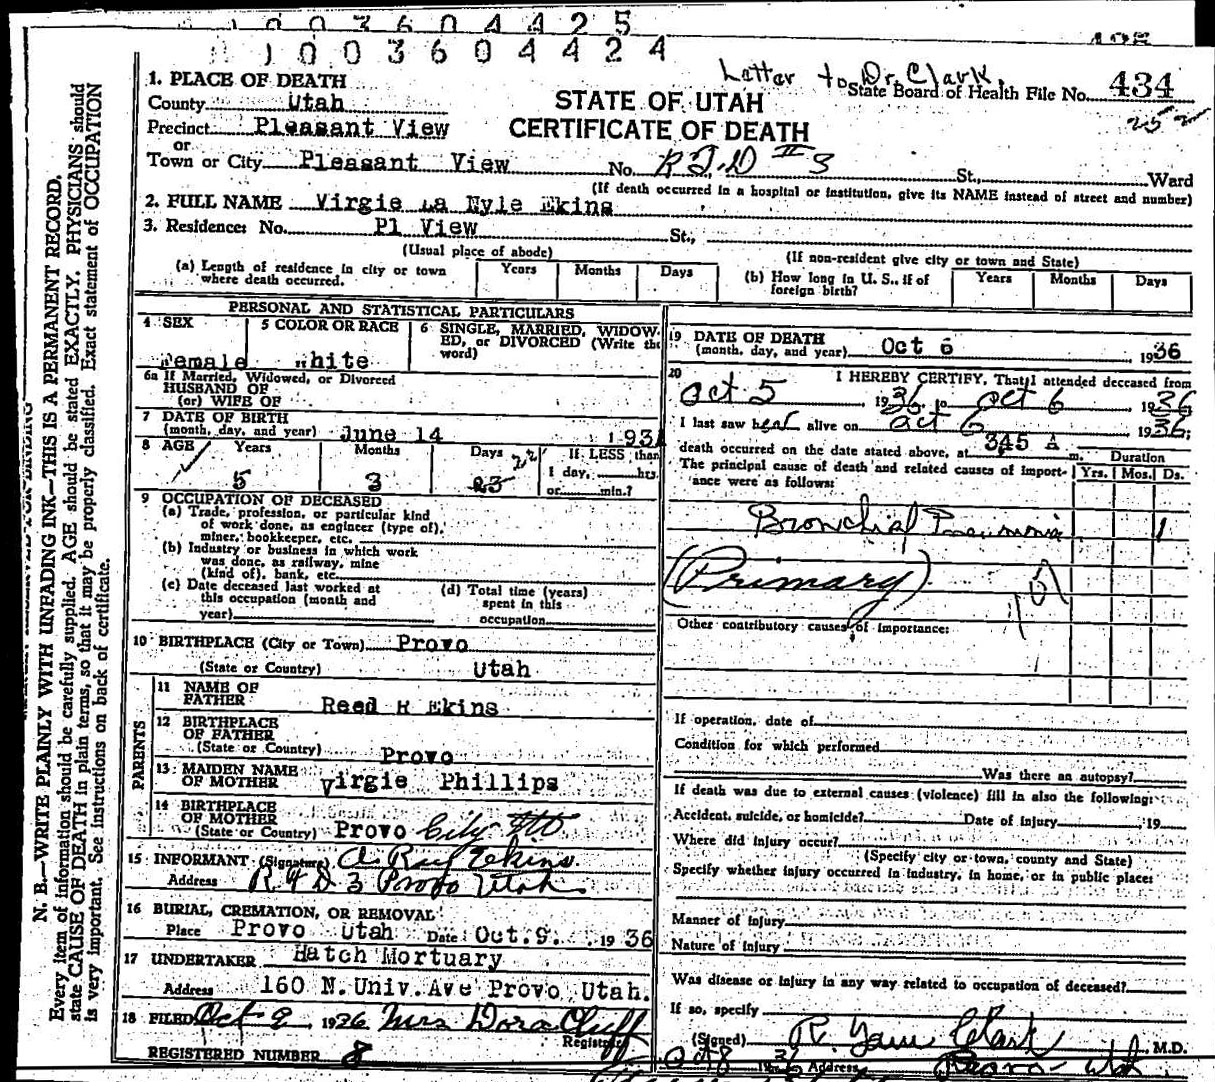 1 0 0 3 6 0 4 4 2 5
1 0 0 3 6 0 4 4 2 4
Letter to Dr. Clark.
1. PLACE OF DEATH
State Board of Health File No. 434
County Utah
STATE OF UTAH
252
Precinct Pleasant View
CERTIFICATE OF DEATH
or
Town or City Pleasant View No. R.F.D # 3 St., Ward
(If death occurred in a hospital or institution, give its NAME instead of street and number)
2. FULL NAME Virgie La Nyle Ekins
3. Residence: No. Pl View St.,
(Usual place of abode) (If non-resident give city or town and State)
(a) Length of residence in city or town where death occurred. Years Months Days
(b) How long in U. S., if of foreign birth? Years Months Days
PERSONAL AND STATISTICAL PARTICULARS
4 SEX 5 COLOR OR RACE 6 SINGLE, MARRIED, WIDOW-
ED, or DIVORCED (Write the
word)
Female White
6a If Married, Widowed, or Divorced
HUSBAND OF
(or) WIFE OF
7 DATE OF BIRTH
(month, day, and year) June 14 1931
8 AGE Years Months Days If LESS than
1 day, hrs.
or min.?
5 3 23 22
9 OCCUPATION OF DECEASED
(a) Trade, profession, or particular kind
of work done, as engineer (type of),
miner, bookkeeper, etc.
(b) Industry or business in which work
was done, as railway, mine
(kind of), bank, etc.
(c) Date deceased last worked at
this occupation (month and
year)
(d) Total time (years)
spent in this
occupation
10 BIRTHPLACE (City or Town) Provo
(State or Country) Utah
PARENTS
11 NAME OF
FATHER Reed R Ekins
12 BIRTHPLACE
OF FATHER
(State or Country) Provo
13 MAIDEN NAME
OF MOTHER Virgie Phillips
14 BIRTHPLACE
OF MOTHER
(State or Country) Provo City
15 INFORMANT (Signature) A. Ray Ekins
Address R F D 3 Provo Utah
16 BURIAL, CREMATION, OR REMOVAL
Place Provo Utah Date Oct.9. 1936
17 UNDERTAKER Hatch Mortuary
Address 160 N.Univ.Ave Provo Utah.
18 FILED Oct 9 1936 Mrs Dora Cluff
Registrar
REGISTERED NUMBER 8
19 DATE OF DEATH
(month, day, and year) Oct 6 1936
20 I HEREBY CERTIFY, That I attended deceased from
Oct 5 1936, to Oct 6 1936
I last saw her alive on Oct 6 1936;
death occurred on the date stated above, at 345 A m. Duration
The principal cause of death and related causes of import-
ance were as follows: Yrs. Mos. Ds.
Bronchial Pneumonia 1
(Primary)
107
Other contributory causes of importance:
If operation, date of
Condition for which performed
Was there an autopsy?
If death was due to external causes (violence) fill in also the following:
Accident, suicide, or homicide? Date of injury , 19
Where did injury occur?
(Specify city or town, county and State)
Specify whether injury occurred in industry, in home, or in public place:
Manner of injury
Nature of injury
Was disease or injury in any way related to occupation of deceased?
If so, specify
(Signed) Clark M.D.
Oct 8 1936 Address Provo Utah
N. B.—WRITE PLAINLY WITH UNFADING INK—THIS IS A PERMANENT RECORD.
Every item of information should be carefully supplied. AGE should be stated EXACTLY. PHYSICIANS should
state CAUSE OF DEATH in plain terms, so that it may be properly classified. Exact statement of OCCUPATION
is very important. See instructions on back of certificate.